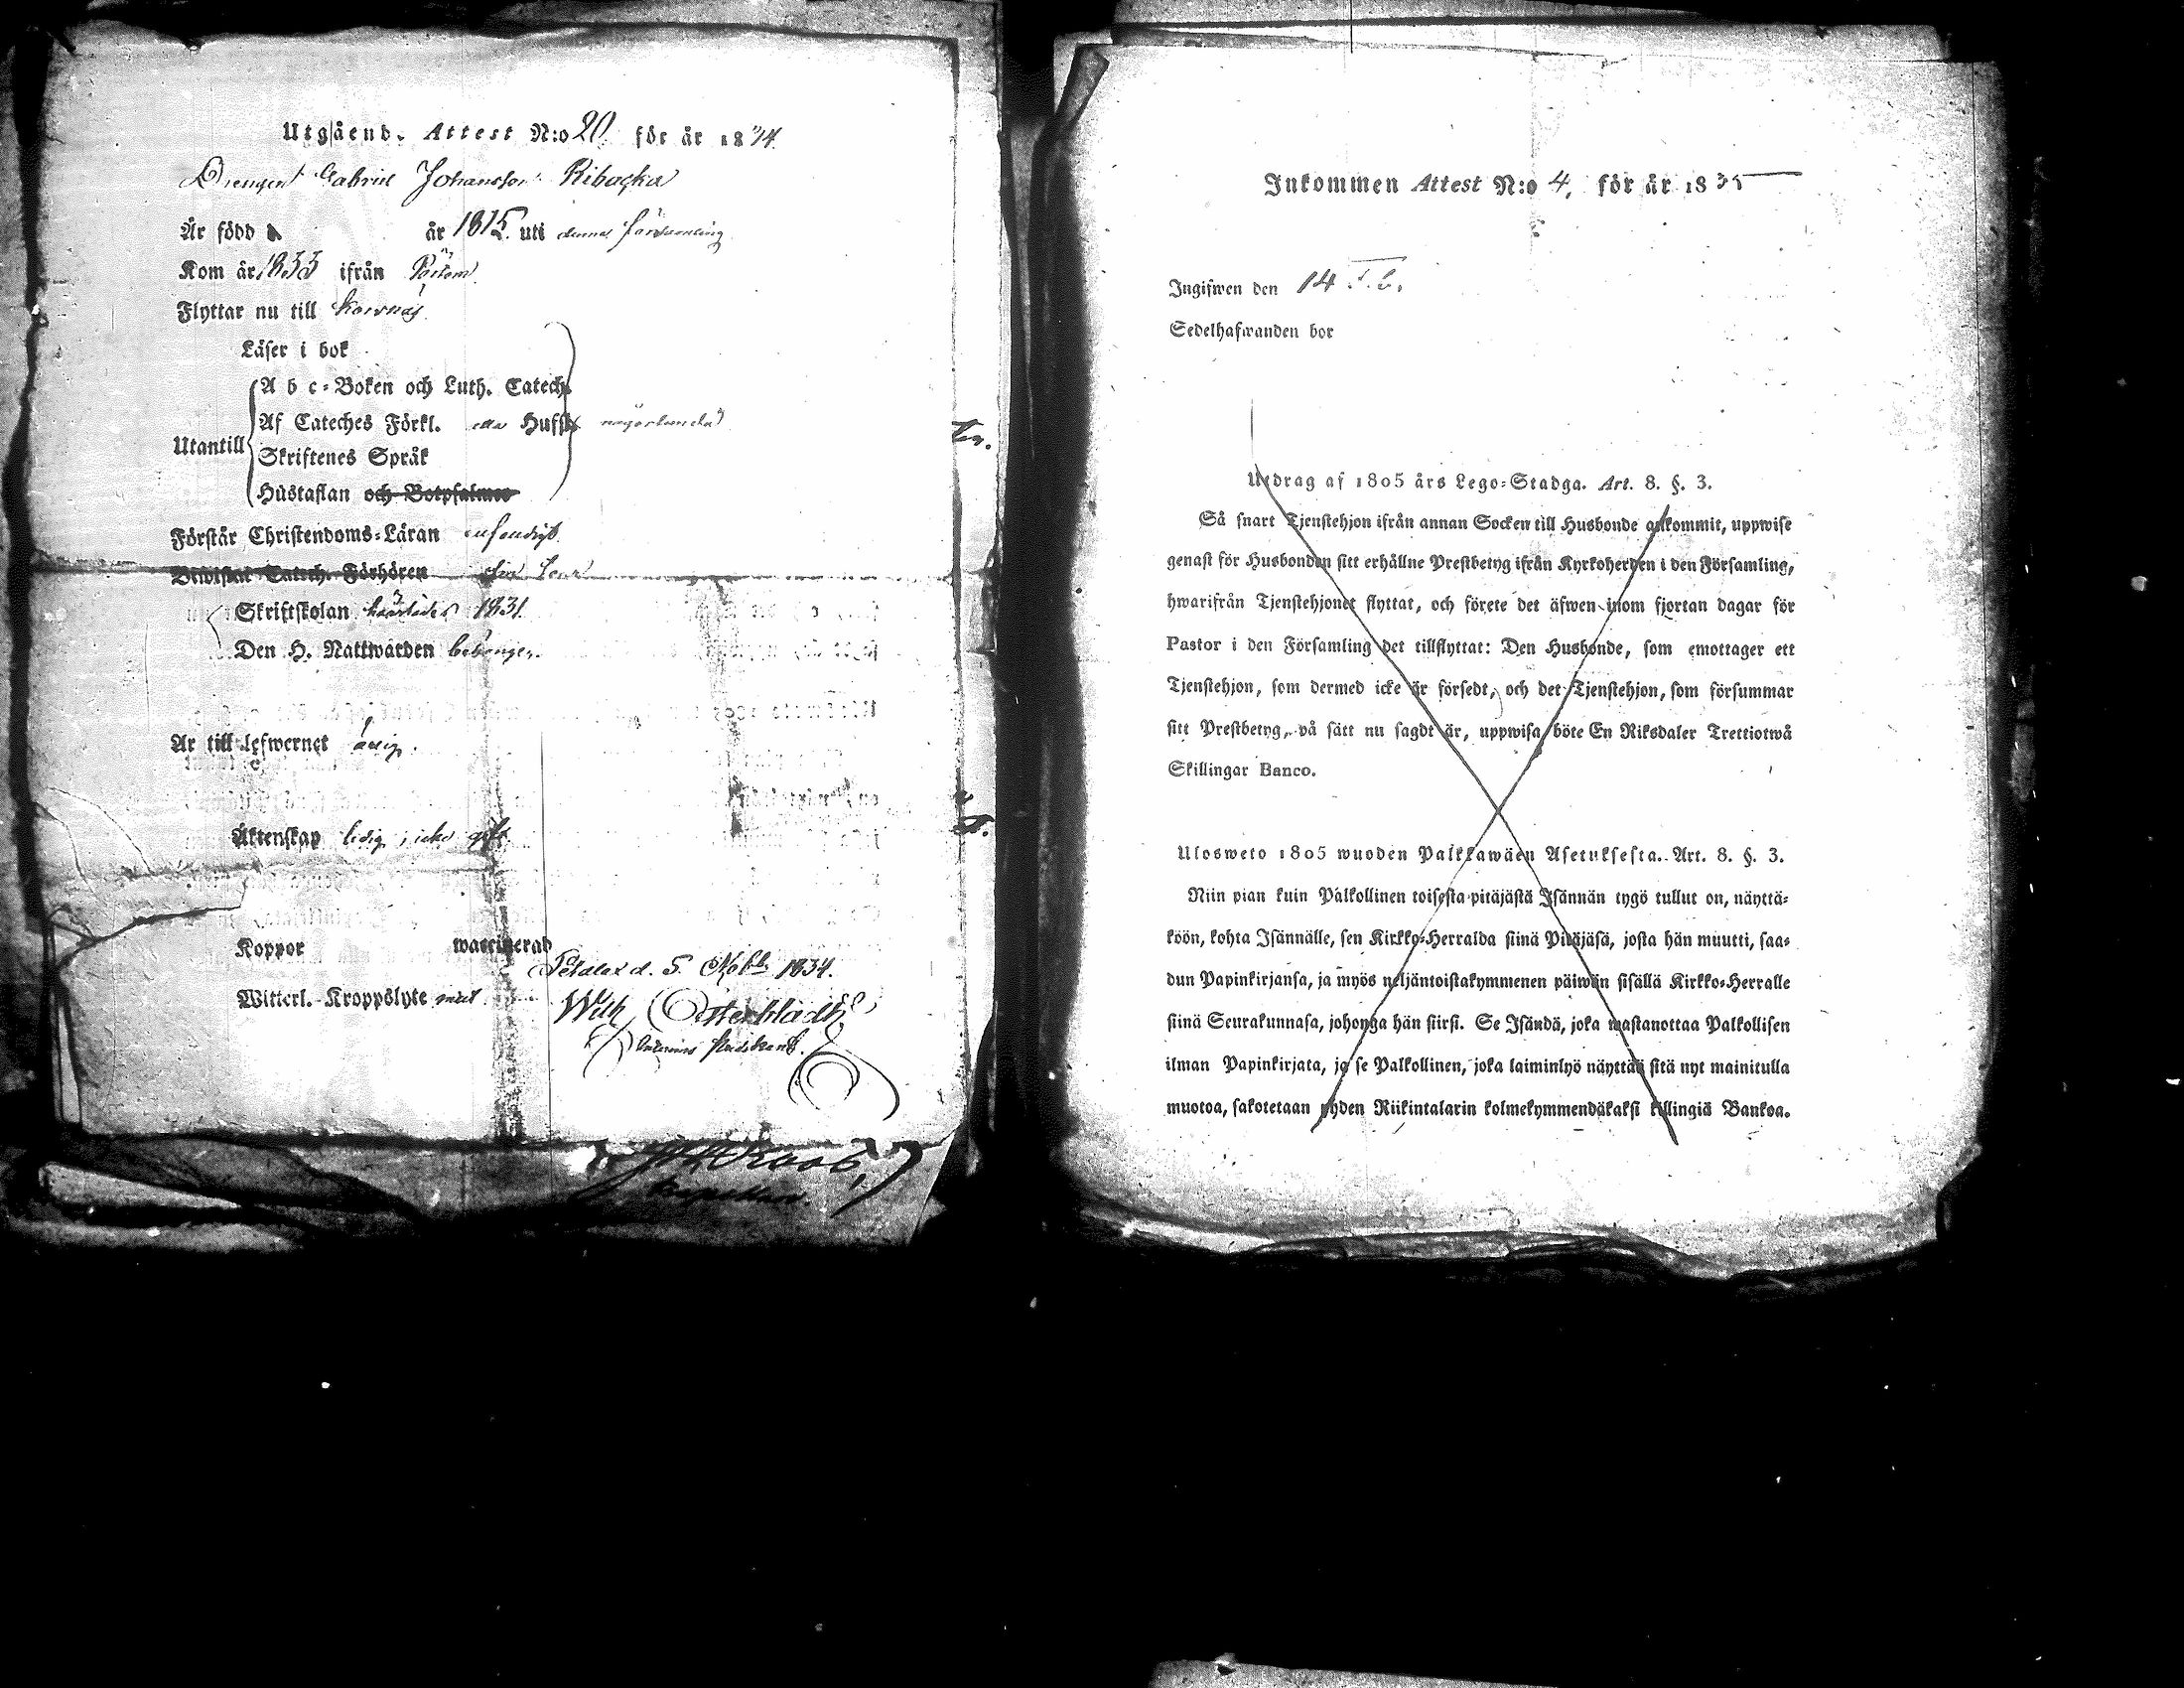 Utgåend. Attest N:o 20 för år 1834
Drengen Gabriel Johansson Ribacka
Är född år 1815 uti denna församling
Kom år 1833 ifrån Pörtom
Flyttar nu till Korsnäs
Läser i bok
A b c-Boken och Luth. Catech.
Af Cateches Förkl. Husf.
Utantill
Skriftenes Språk
Hustaflan och Botpsalmer
någorlunda
Förstår Christendoms-Läran enfaldigt
Biwistat Catech. Förhören
Skriftskolan 1831
Den H. Nattwarden begången
Är till lefwernet ärlig.
Äktenskap ledig, icke gift.
Koppor waccinerad
Petalax d. 5 1834.
Witterl. Kroppslyte
Wilh Österbladh
Kapellan
Inkommen Attest N:o 4, för år 1835
Ingifwen den 14
Sedelhafwanden bor
Utdrag af 1805 års Lego-Stadga. Art. 8. §. 3.
Så snart Tjenstehjon ifrån annan Socken till Husbonde ankommit, uppwise
genast för Husbonden sitt erhållne Prestbetyg ifrån Kyrkoherden i den Församling,
hwarifrån Tjenstehjonet flyttat, och förete det äfwen inom fjortan dagar för
Pastor i den Församling det tillflyttat: Den Husbonde, som emottager ett
Tjenstehjon, som dermed icke är försedt, och det Tjenstehjon, som försummar
sitt Prestbetyg, på sätt nu sagdt är, uppwisa, böte En Riksdaler Trettiotwå
Skillingar Banco.
Ulosweto 1805 wuoden Palkkawäen Asetuksesta. Art. 8. §. 3.
Niin pian kuin Palkollinen toisesta pitäjästä Isännän tygö tullut on, näyttä-
köön, kohta Isännälle, sen Kirkko-Herralda siinä Pitäjäsä, josta hän muutti, saa-
dun Papinkirjansa, ja myös neljäntoistakymmenen päiwän sisällä Kirkko-Herralle
siinä Seurakunnasa, johonga hän siirsi. Se Isändä, joka wastanottaa Palkollisen
ilman Papinkirjata, ja se Palkollinen, joka laiminlyö näyttää sitä nyt mainitulla
muotoa, sakotetaan yhden Riikintalarin kolmekymmendäkaksi killingiä Bankoa.